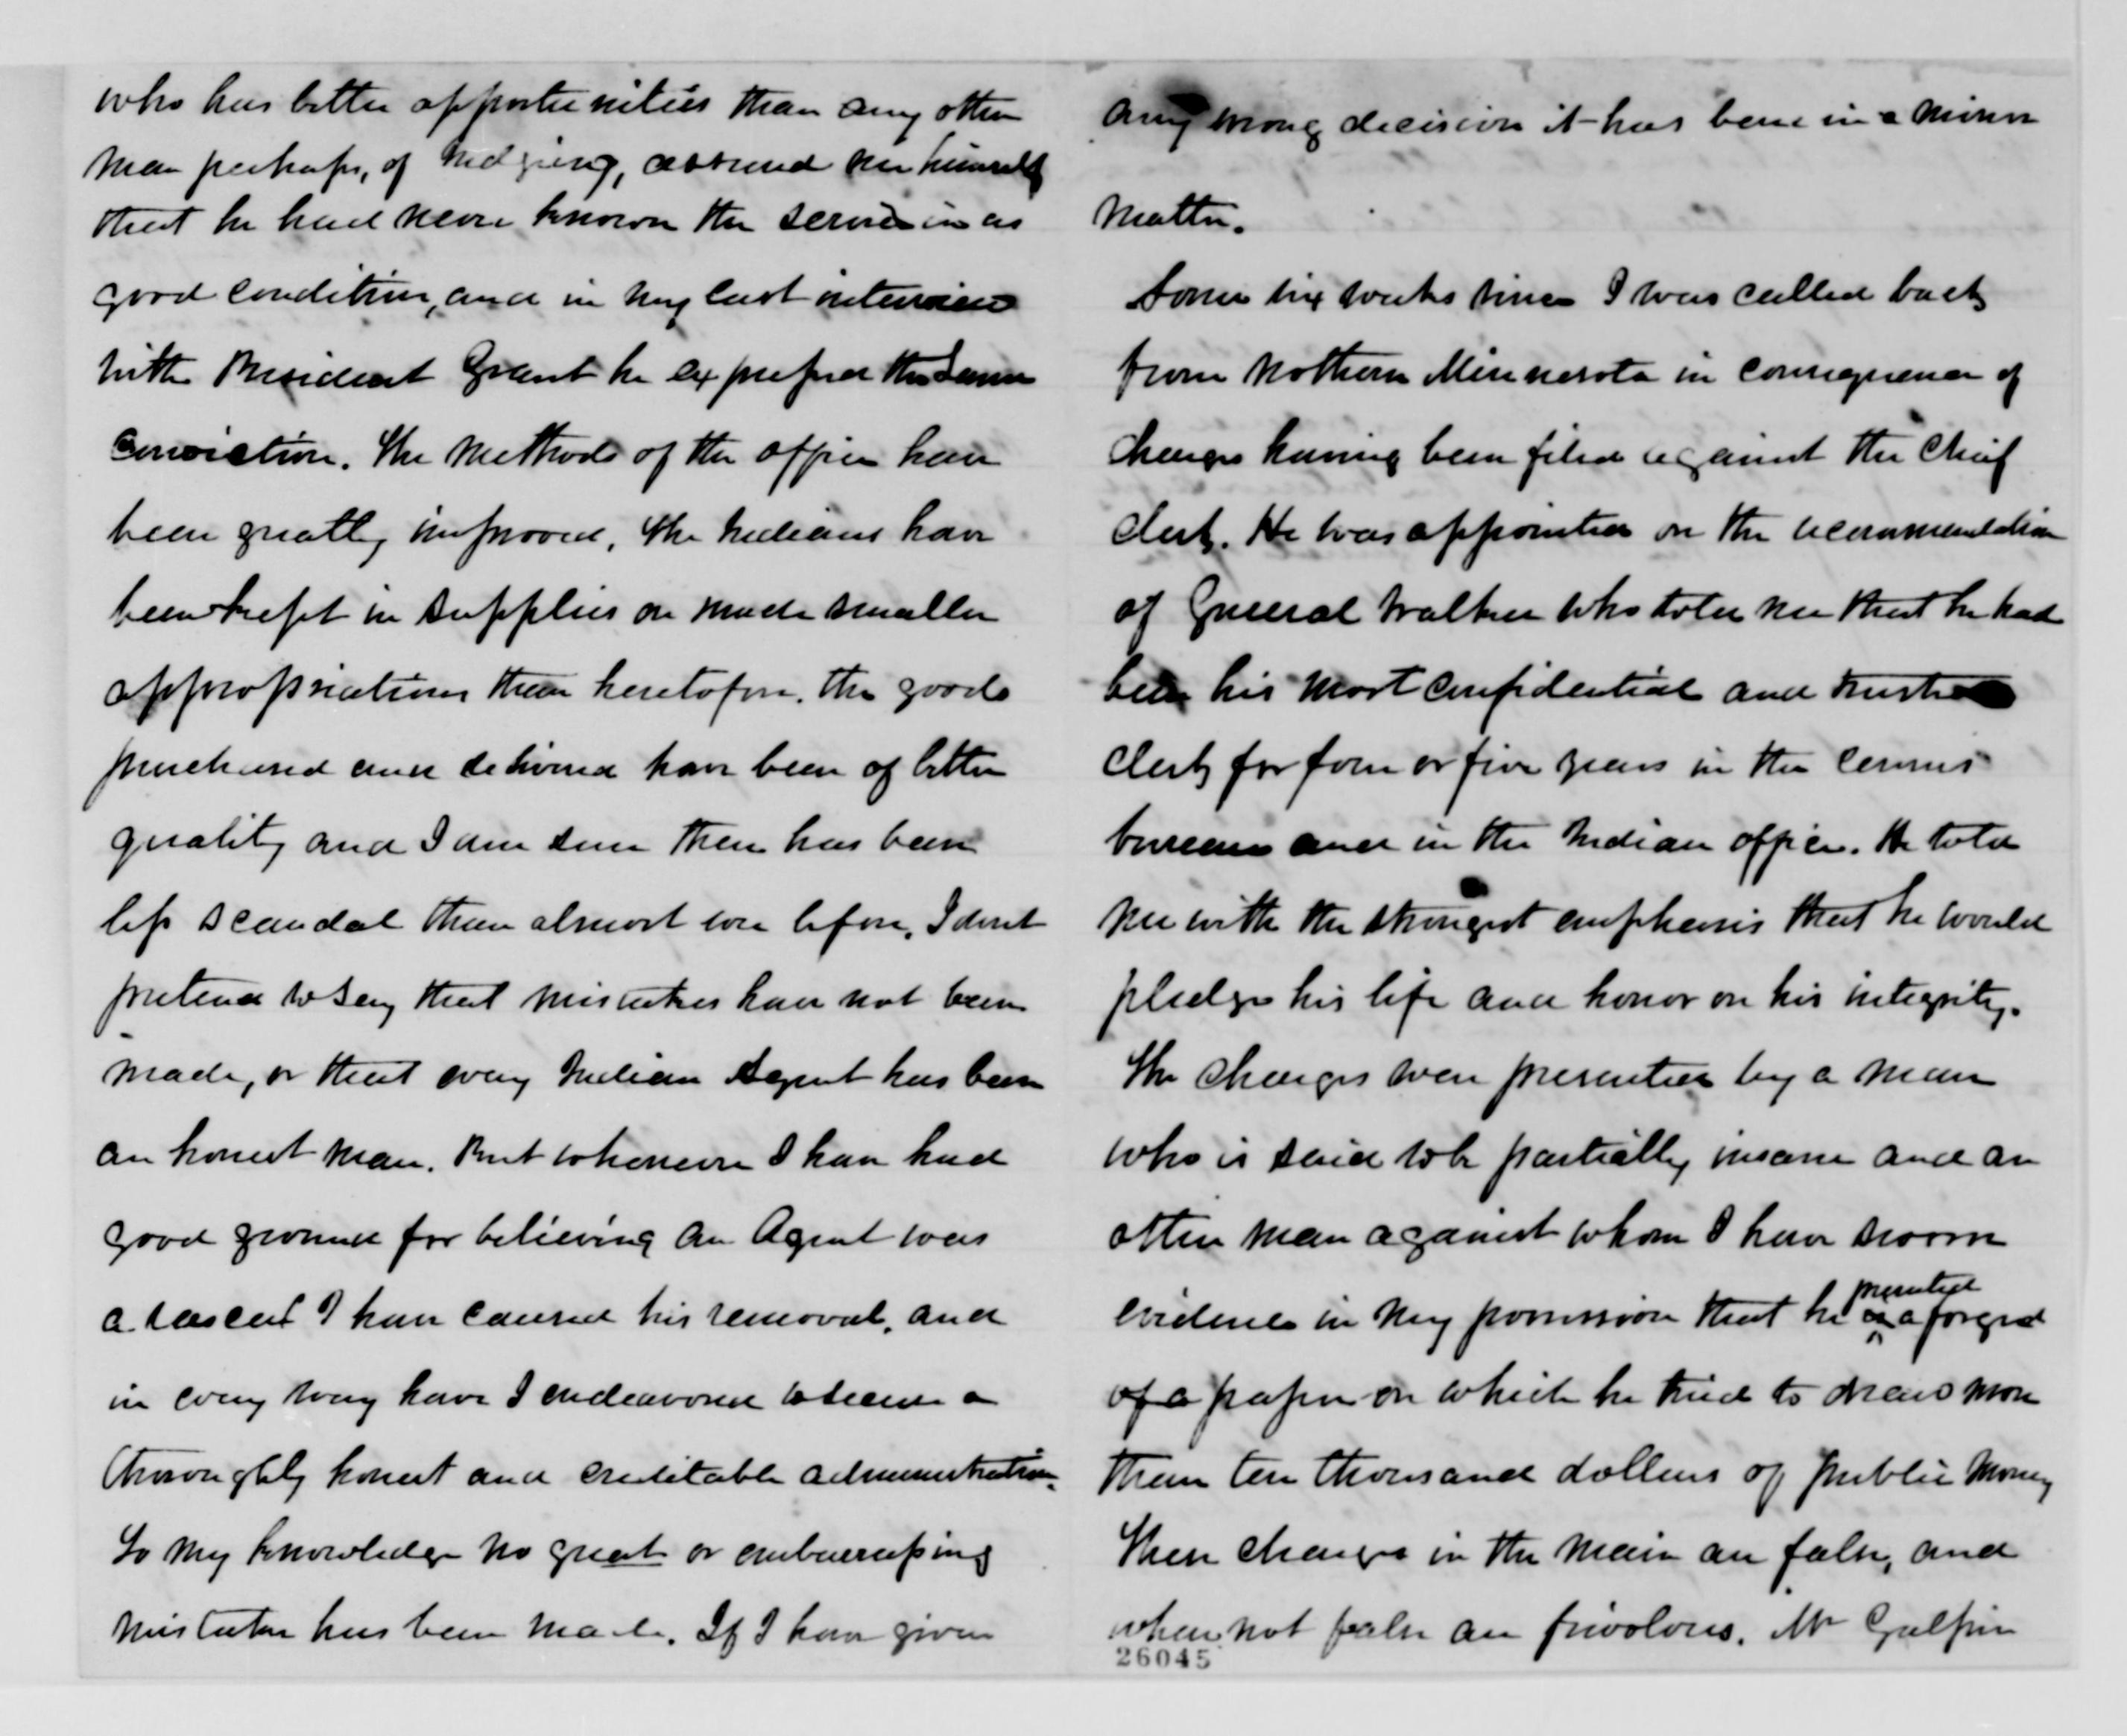 who has better opportunities than any other
man perhaps, of judging, assured me himself
that he had never known the service in as
good condition, and in my last interview
with President Grant he expressed the same
conviction. The methods of the office have
been greatly improved, the Indians have
been kept in supplies on much smaller
appropriations than heretofore. the goods
purchased and delivered have been of better
quality and I am sure there has been
less scandal than almost ever before, I dont
pretend to say that mistakes have not been
made, or that every Indian Agent has been
an honest man. But whenever I have had
good ground for believing an Agent was
a rascal I have caused his removal, and
in every way have I endeavored to secure a
thoroughly honest and creditable administration.
To my knowledge no great or embarrassing
mistake has been made. If I have given
any wrong decision it has been in a minor
matter.
Some six weeks since I was called back
from Nothern Minnesota in consequence of
charges having been filed against the Chief
Clerk. He was appointed on the recommendation
of General Walker who told me that he had
been his most confidential and trusted
Clerk for four or five years in the Census
bureau and in the Indian office. He told
me with the strongest emphasis that he would
pledge his life and honor on his integrity.
The charges were presented by a man
who is said to be partially insane and an
other man against whom I have sworn
evidence in my possession that he presented a forged
paper on which he tried to draw more
than ten thousand dollars of public money
These charges in the main are false, and
when not false are frivolous. Mr Galpin
26045